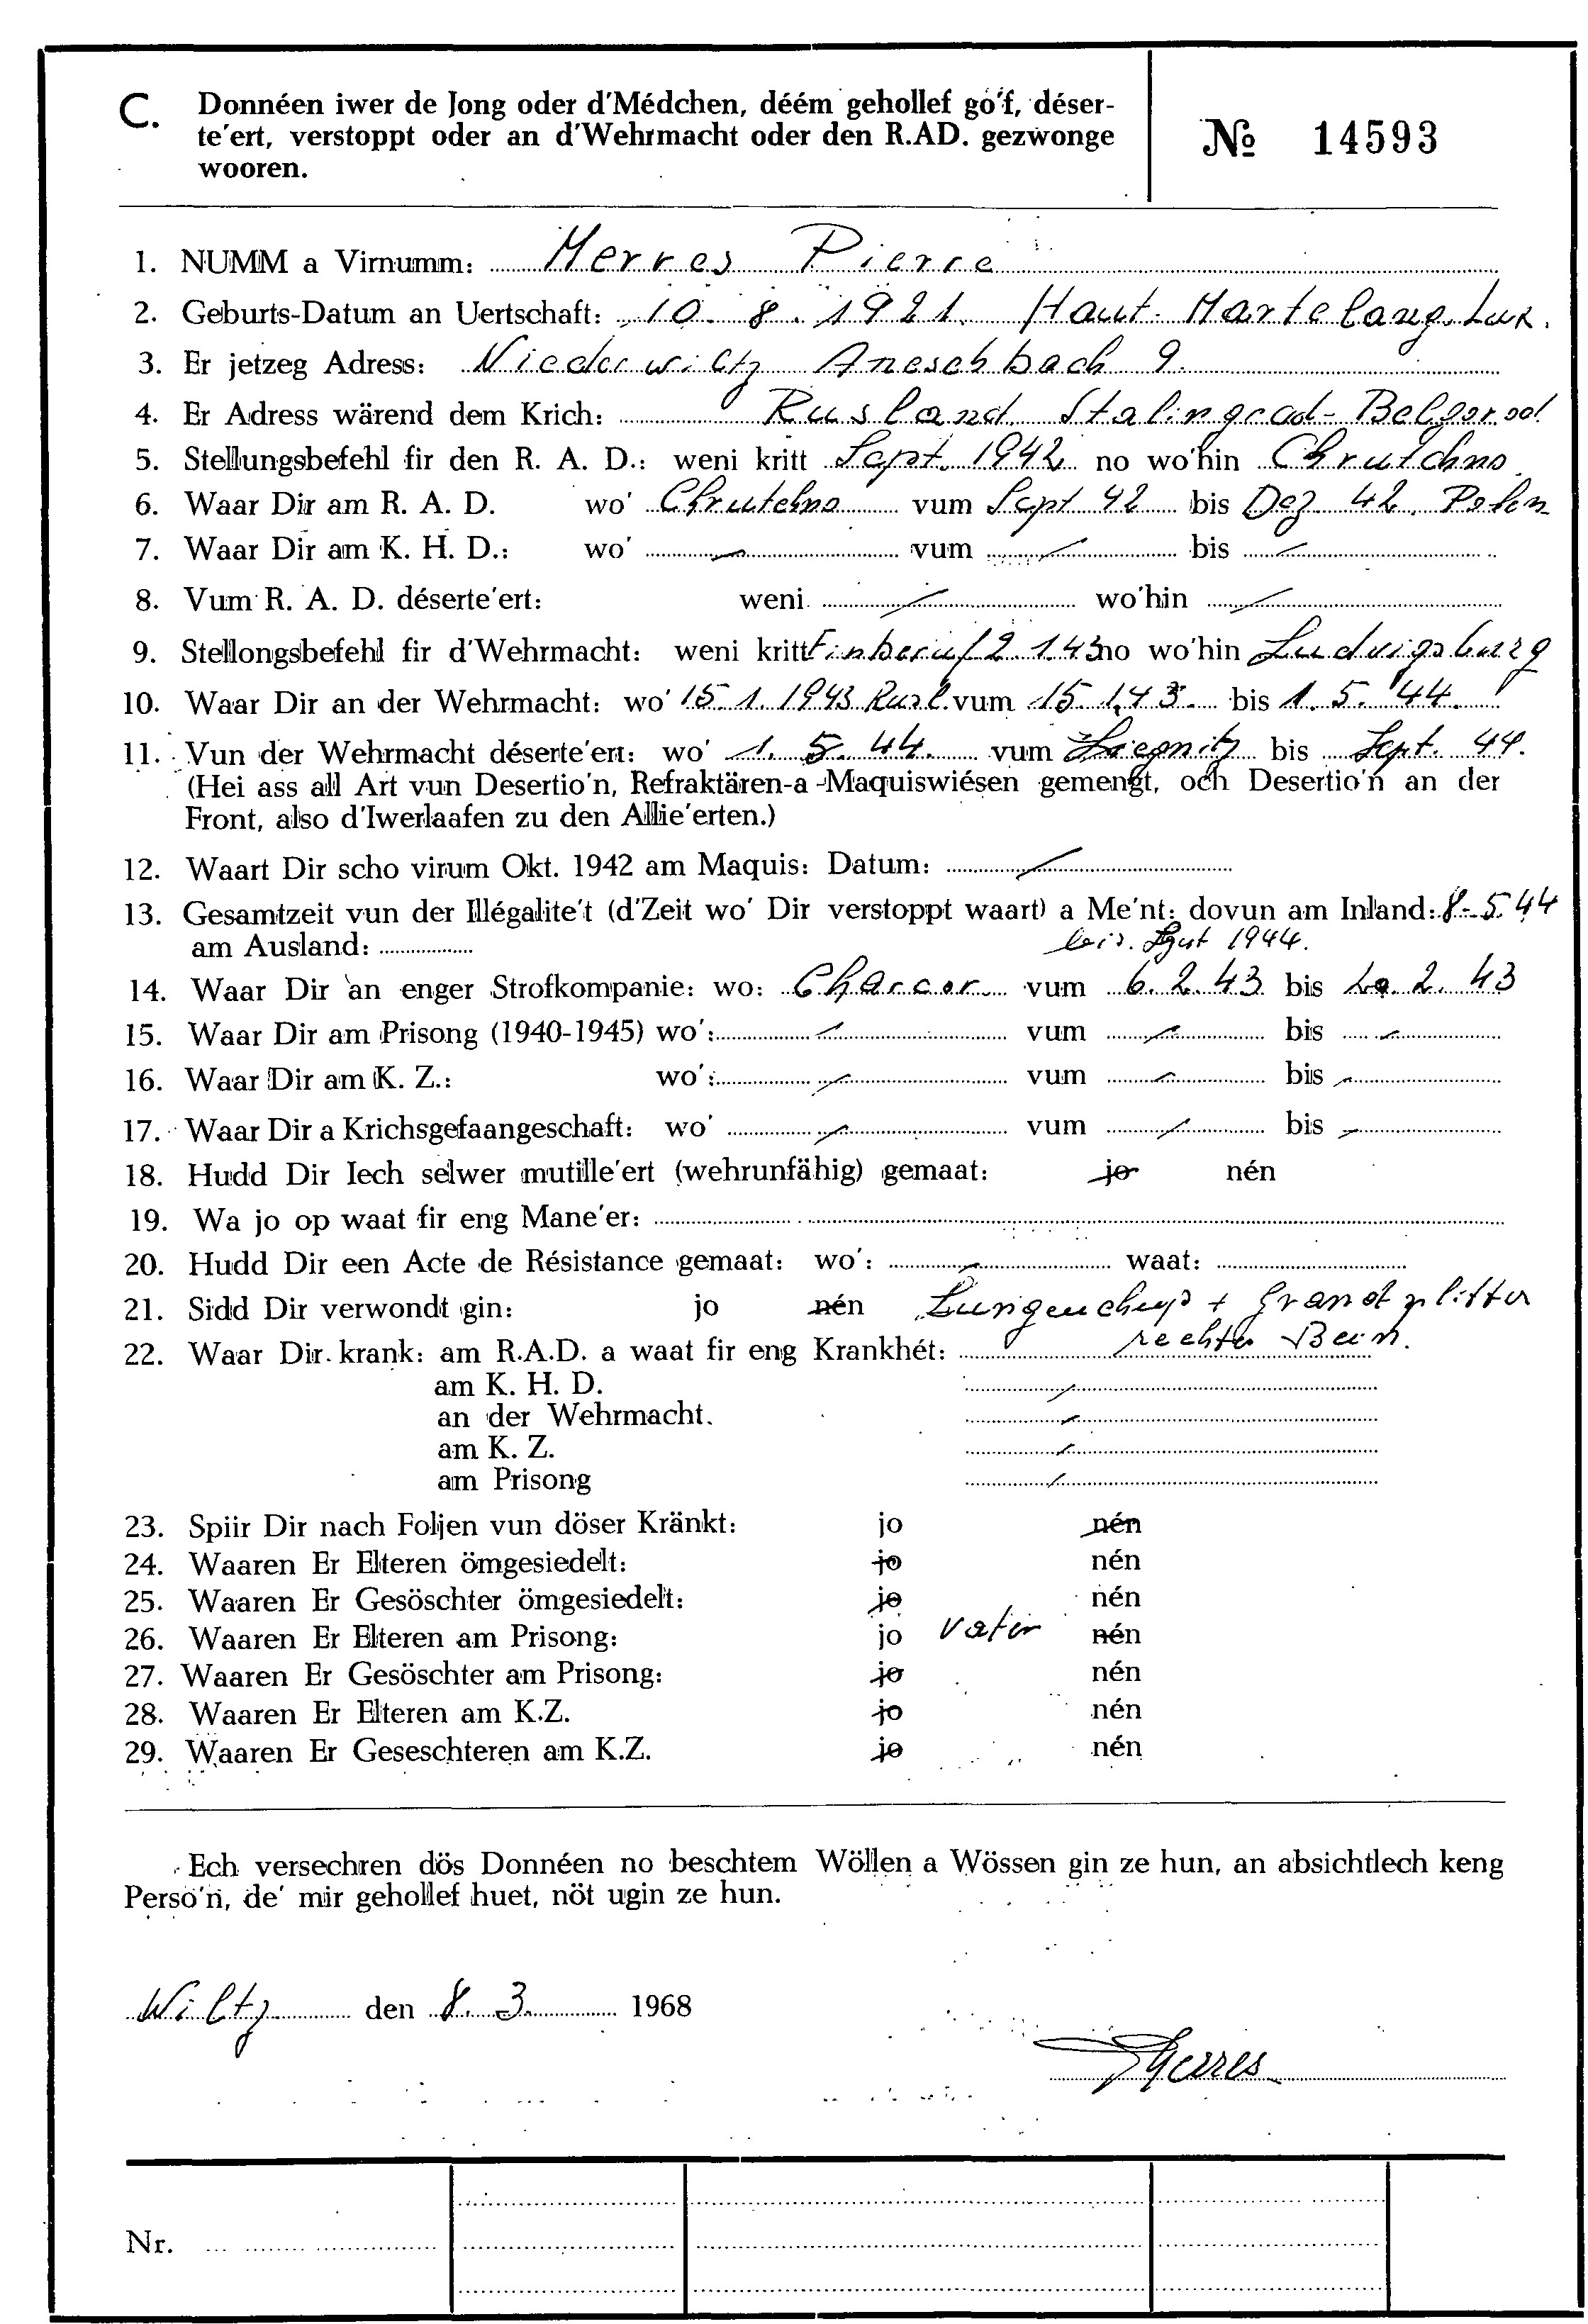 C. Donnéen iwer de Jong oder d'Médchen, déém gehollef go'f, déser-
te'ert, verstoppt oder an d'Wehrmacht oder den R.AD. gezwonge
wooren.
№ 14593
1. NUMM a Virnumm: Merres Pierre
2. Geburts-Datum an Uertschaft: 10. 8. 1921. Haut-Martelang. Lux.
3. Er jetzeg Adress: Niederwiltz Aneschbach 9.
4. Er Adress wärend dem Krich: Rusland Stalingrad-Belgorod
5. Stellungsbefehl fir den R. A. D.: weni kritt Sept. 1942 no wo'hin Chrutchno
6. Waar Dir am R. A. D. wo' Chrutchno vum Sept 42 bis Dez. 42. Polen
7. Waar Dir am K. H. D.: wo' vum bis
8. Vum R. A. D. déserte'ert: weni wo'hin
9. Stellongsbefehl fir d'Wehrmacht: weni kritt Einberuf 2 1.43 no wo'hin Ludwigsburg
10. Waar Dir an der Wehrmacht: wo' 15. 1. 1943 Rusl. vum 15. 1.43. bis 1. 5. 44.
11. Vun der Wehrmacht déserte'ert: wo' 1. 5. 44. vum Liegnitz bis Sept. 44.
(Hei ass all Art vun Desertio'n, Refraktären-a -Maquiswiésen gemengt, och Desertio'n an der
Front, also d'Iwerlaafen zu den Allie'erten.)
12. Waart Dir scho virum Okt. 1942 am Maquis: Datum:
13. Gesamtzeit vun der Illégalite't (d'Zeit wo' Dir verstoppt waart) a Me'nt: dovun am Inland: 8-5.44
am Ausland: bis. Sept 1944.
14. Waar Dir an enger Strofkompanie: wo: Charcor vum 6. 2. 43 bis 2. 43
15. Waar Dir am Prisong (1940-1945) wo': vum bis
16. Waar Dir am K. Z.: wo': vum bis
17. Waar Dir a Krichsgefaangeschaft: wo' vum bis
18. Hudd Dir Iech selwer mutille'ert (wehrunfähig) gemaat: jo nén
19. Wa jo op waat fir eng Mane'er:
20. Hudd Dir een Acte de Résistance gemaat: wo': waat:
21. Sidd Dir verwondt gin: jo nén + Granatsplitter
22. Waar Dir krank: am R.A.D. a waat fir eng Krankhét: rechter Bein.
am K. H. D.
an der Wehrmacht.
am K. Z.
am Prisong
23. Spiir Dir nach Foljen vun döser Kränkt: jo nén
24. Waaren Er Elteren ömgesiedelt: jo nén
25. Waaren Er Gesöschter ömgesiedelt: jo nén
26. Waaren Er Elteren am Prisong: jo Vater nén
27. Waaren Er Gesöschter am Prisong: jo nén
28. Waaren Er Elteren am K.Z. jo nén
29. Waaren Er Geseschteren am K.Z. jo nén
Ech versechren dös Donnéen no beschtem Wöllen a Wössen gin ze hun, an absichtlech keng
Perso'n, de' mir gehollef huet, nöt ugin ze hun.
Wiltz den 8. 3. 1968
Merres
Nr.